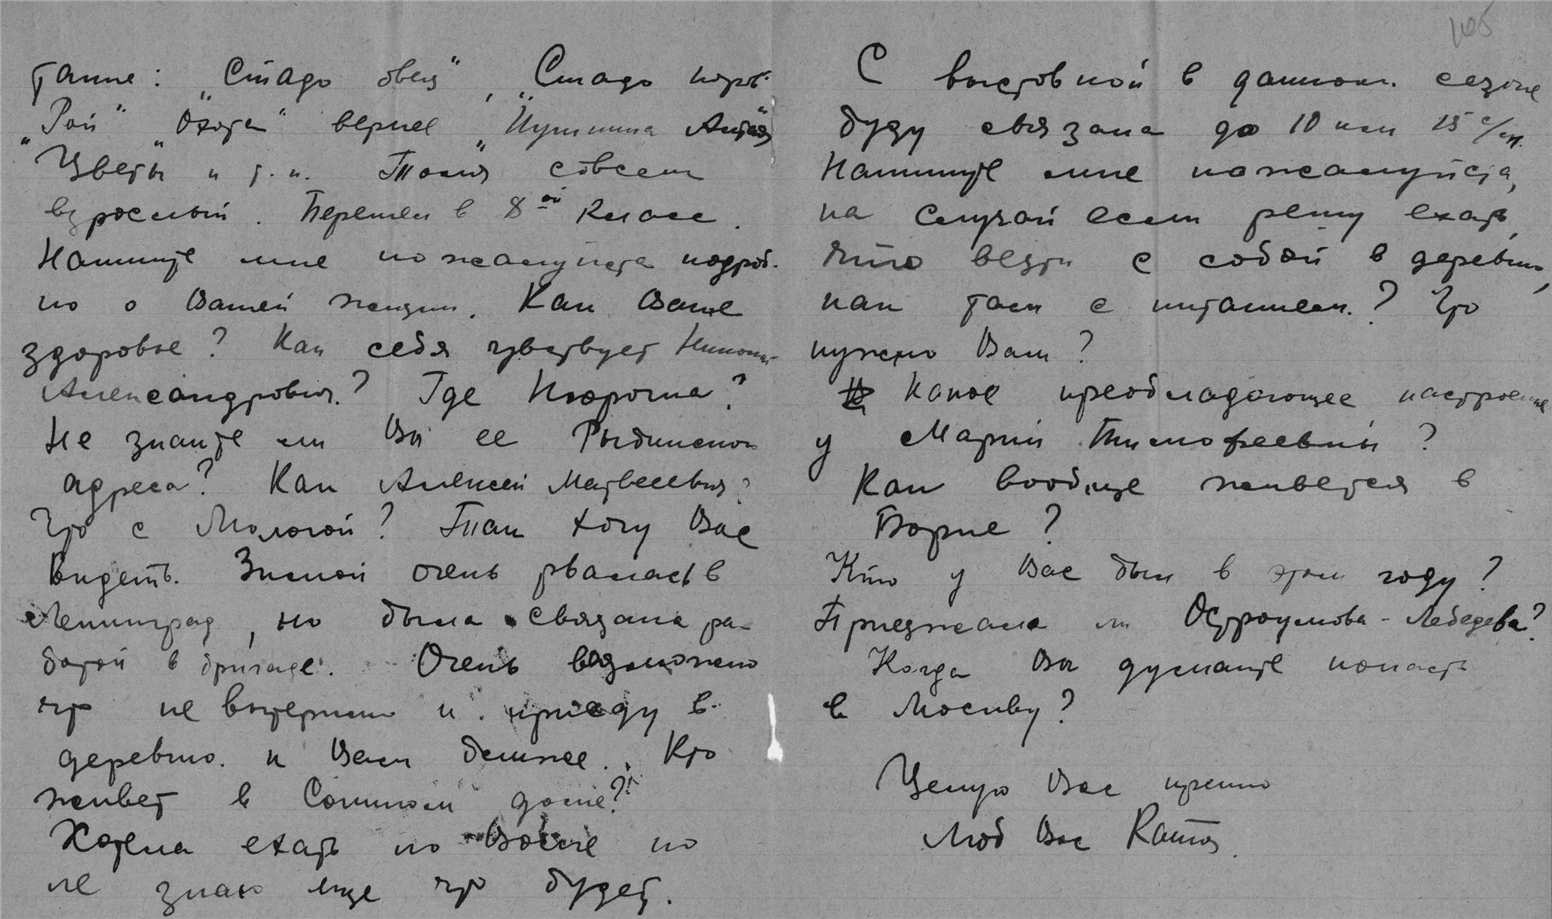 такие: „Стадо овец", „Стадо коров"
„Рой" „Охота" вернее „Пушнина Алтая"
„Цветы" и т.п. Толя совсем
взрослый. Перешел в 8ой класс.
Напишите мне пожалуйста подроб-
но о Вашей жизни. Как Ваше
здоровье? Как себя чувствует Николай
Александрович? Где Нюрочка?
Не знаете ли Вы ее Рыбинского
адреса? Как Алексей Матвеевич?
Что с Мологой? Так хочу Вас
видеть. Зимой очень рвалась в
Ленинград, но была связана ра-
ботой в бригаде. Очень возможно
что не вытерплю и приеду в
деревню к Вам ближе. Кто
живет в Сонином доме?
Хотела ехать по Волге но
не знаю еще что будет.
105
С выставкой в данном сезоне
буду связана до 10 или 15 с/м.
Напишите мне пожалуйста,
на случай если решу ехать,
что везти с собой в деревню,
как там с питанием? Что
нужно Вам?
Какое преобладающее настроение
у Марии Тимофеевны?
Как вообще живется в
Борке?
Кто у Вас был в этом году?
Приезжала ли Остроумова-Лебедева?
Когда Вы думаете попасть
в Москву?
Целую Вас крепко
Люб Вас Катя.